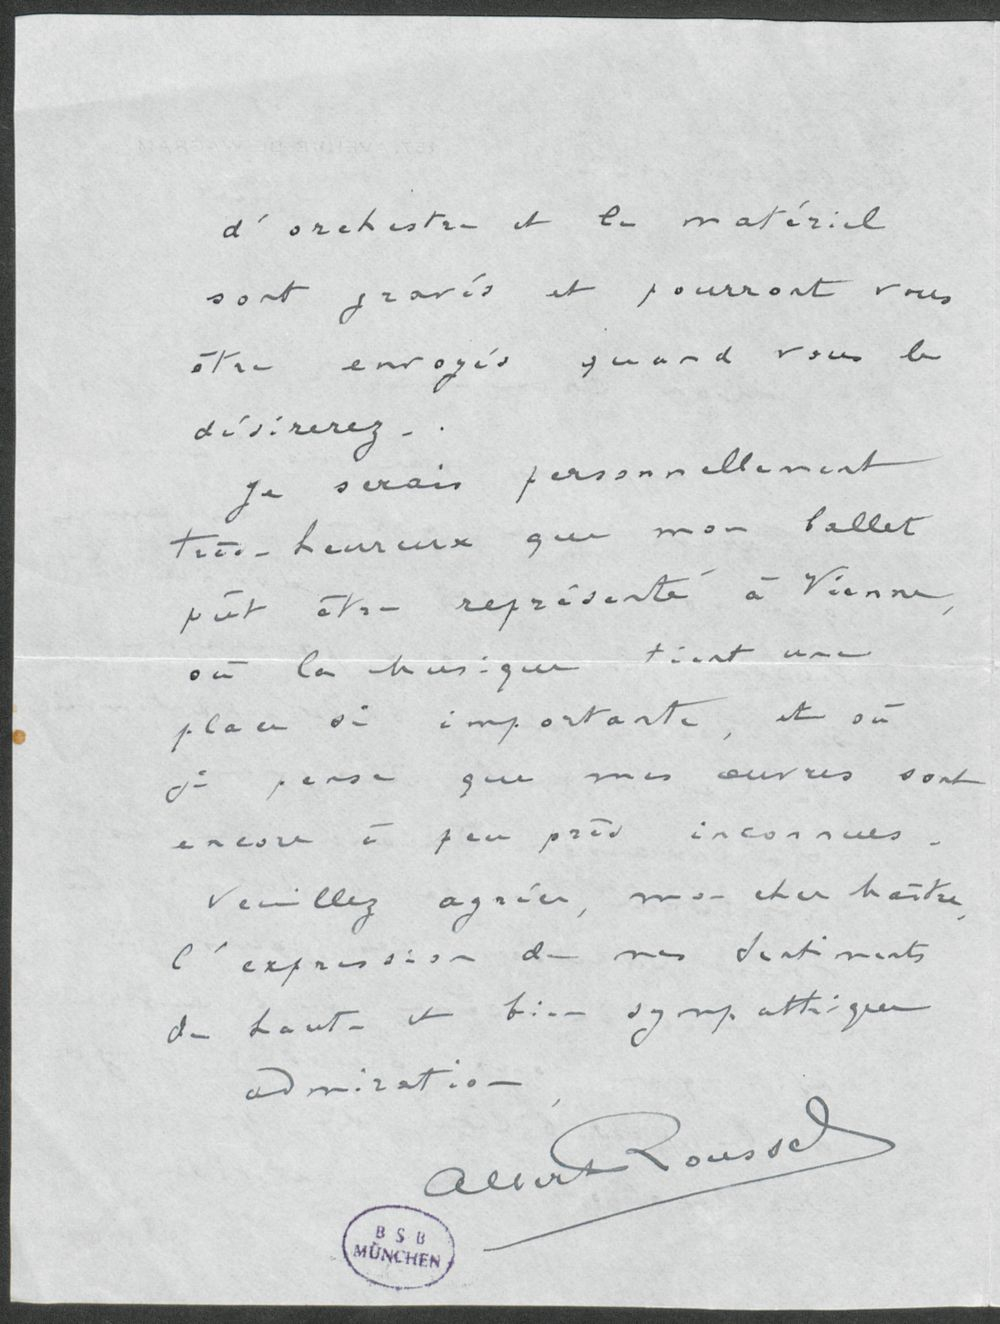 d'orchestre et le matériel
sont gravés et pourront vous
être envoyés quand vous le
désirerez.
Je serais personnellement
très heureux que mon ballet
pût être représenté à Vienne,
où la musique tient une
place si importante, et où
je pense que mes œuvres sont
encore à peu près inconnues.
Veuillez agréer, mon cher Maître,
l'expression de mes sentiments
de haute et bien sympathique
admiration,
Albert Roussel
B S B
MÜNCHEN